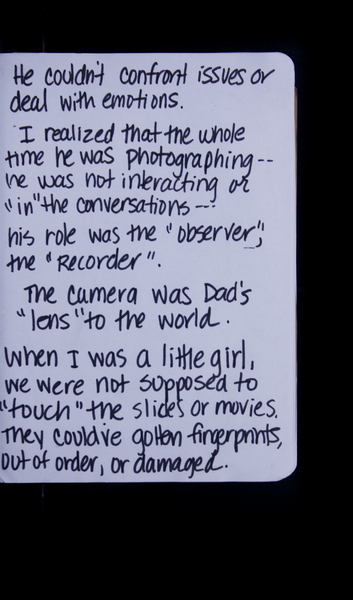 He couldn't confront issues or
deal with emotions.
I realized that the whole
time he was photographing--
he was not interacting or
"in" the conversations --
his role was the "observer",
the "Recorder".
The camera was Dad's
"lens" to the world.
When I was a little girl,
we were not supposed to
"touch" the slides or movies.
They could've gotten fingerprints,
out of order, or damaged.